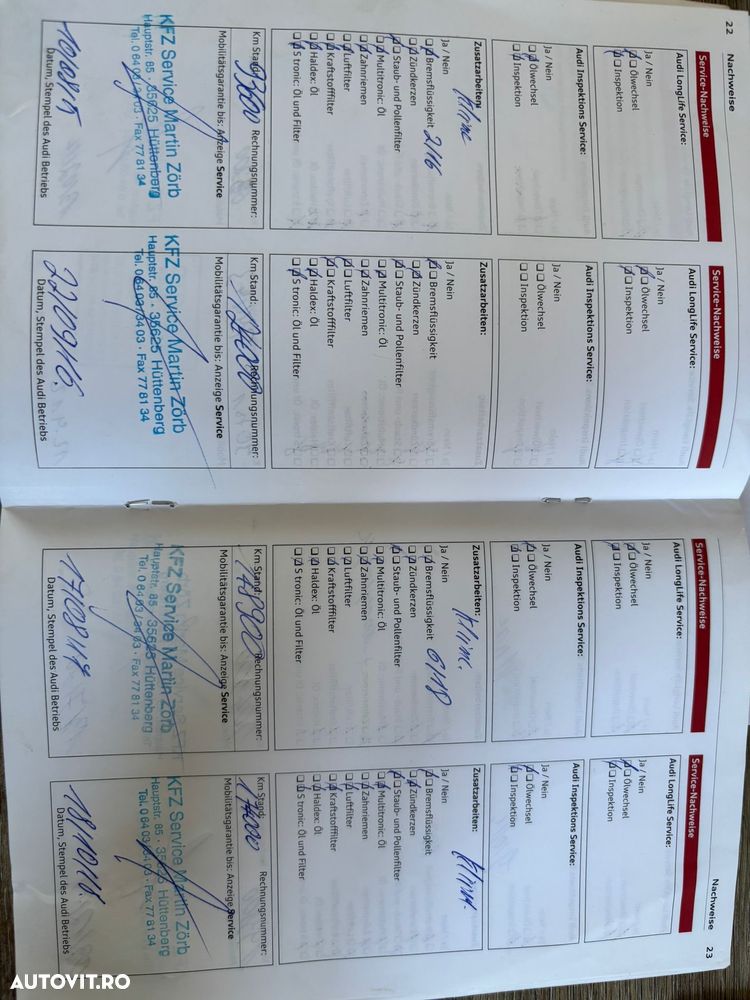 22 Nachweise
Service-Nachweise
Audi LongLife Service:
Ja / Nein
Ölwechsel
Inspektion
Audi Inspektions Service:
Ja / Nein
Ölwechsel
Inspektion
Zusatzarbeiten:
Klima
Ja / Nein
Bremsflüssigkeit 2/16
Zündkerzen
Staub- und Pollenfilter
Multitronic: Öl
Zahnriemen
Luftfilter
Kraftstofffilter
Haldex: Öl
S tronic: Öl und Filter
Km Stand: 93600 Rechnungsnummer:
Mobilitätsgarantie bis: Anzeige Service
KFZ Service Martin Zörb
Hauptstr. 85 · 35625 Hüttenberg
Tel. 0 64 03/ 7 84 03 · Fax 77 81 34
10/08/15
Datum, Stempel des Audi Betriebs
Service-Nachweise
Audi LongLife Service:
Ja / Nein
Ölwechsel
Inspektion
Audi Inspektions Service:
Ja / Nein
Ölwechsel
Inspektion
Zusatzarbeiten:
Ja / Nein
Bremsflüssigkeit
Zündkerzen
Staub- und Pollenfilter
Multitronic: Öl
Zahnriemen
Luftfilter
Kraftstofffilter
Haldex: Öl
S tronic: Öl und Filter
Km Stand: 124000 Rechnungsnummer:
Mobilitätsgarantie bis: Anzeige Service
KFZ Service Martin Zörb
Hauptstr. 85 · 35625 Hüttenberg
Fax 77 81 34
22/09/16.
Datum, Stempel des Audi Betriebs
Service-Nachweise
Audi LongLife Service:
Ja / Nein
Ölwechsel
Inspektion
Audi Inspektions Service:
Ja / Nein
Ölwechsel
Inspektion
Zusatzarbeiten:
Klima.
Ja / Nein
Bremsflüssigkeit 6/18
Zündkerzen
Staub- und Pollenfilter
Multitronic: Öl
Zahnriemen
Luftfilter
Kraftstofffilter
Haldex: Öl
S tronic: Öl und Filter
Km Stand: 148900 Rechnungsnummer:
Mobilitätsgarantie bis: Anzeige Service
KFZ Service Martin Zörb
Hauptstr. 85 · 35625 Hüttenberg
Fax 77 81 34
17/08/17
Datum, Stempel des Audi Betriebs
Nachweise 23
Service-Nachweise
Audi LongLife Service:
Ja / Nein
Ölwechsel
Inspektion
Audi Inspektions Service:
Ja / Nein
Ölwechsel
Inspektion
Zusatzarbeiten:
Klima.
Ja / Nein
Bremsflüssigkeit
Zündkerzen
Staub- und Pollenfilter
Multitronic: Öl
Zahnriemen
Luftfilter
Kraftstofffilter
Haldex: Öl
S tronic: Öl und Filter
Km Stand: Rechnungsnummer:
Mobilitätsgarantie bis: Anzeige Service
KFZ Service Martin Zörb
Hauptstr. 85 · 35625 Hüttenberg
Fax 77 81 34
18/10/18.
Datum, Stempel des Audi Betriebs
AUTOVIT.RO